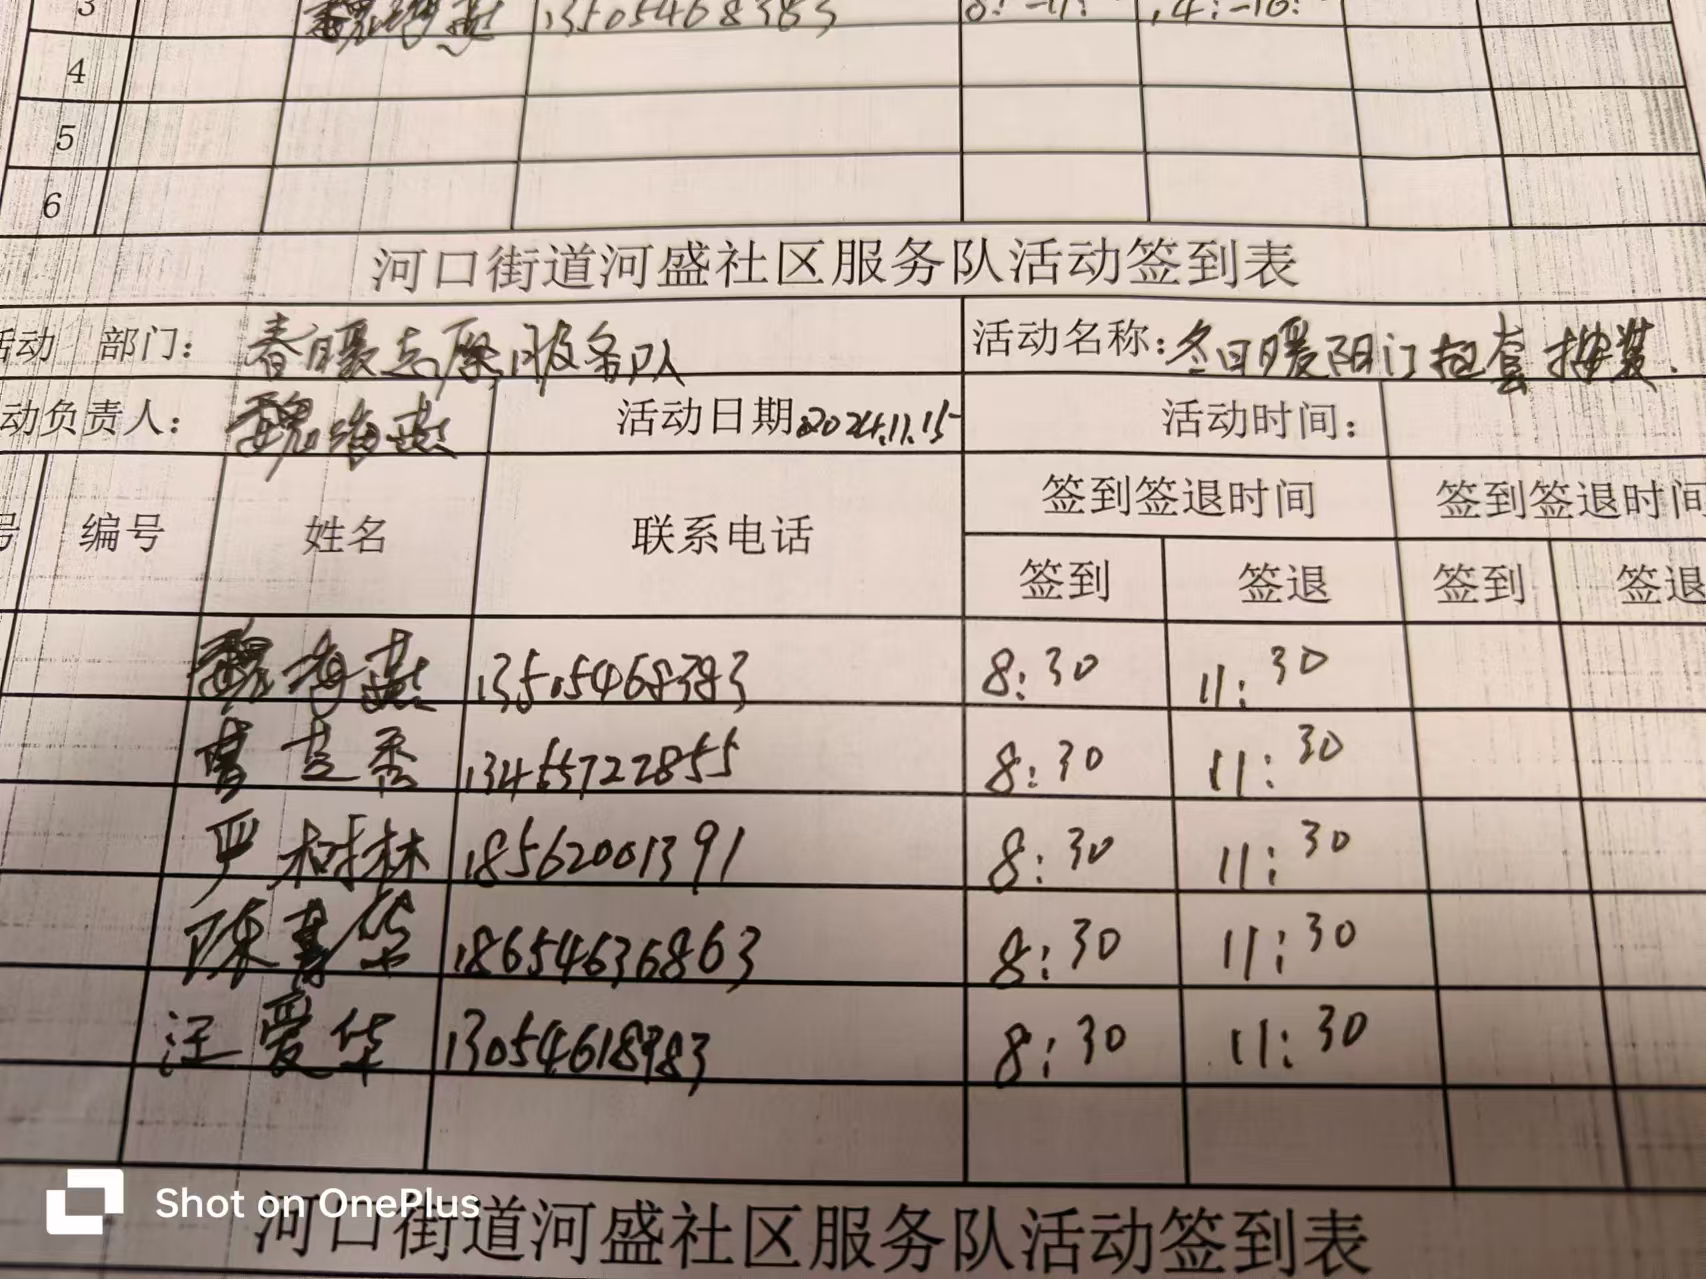 3 魏海燕 13505468383
4
5
6
河口街道河盛社区服务队活动签到表
活动 部门： 春暖志愿服务队 活动名称：冬日暖阳门把套按装.
动负责人： 魏海燕 活动日期2024.11.15 活动时间：
号 编号 姓名 联系电话 签到签退时间 签到签退时间
签到 签退 签到 签退
魏海燕 13505468383 8:30 11:30
13455722855 8:30 11:30
严树林 18562001391 8:30 11:30
陈 华 18654636863 8:30 11:30
汪爱华 13054618983 8:30 11:30
Shot on OnePlus
河口街道河盛社区服务队活动签到表